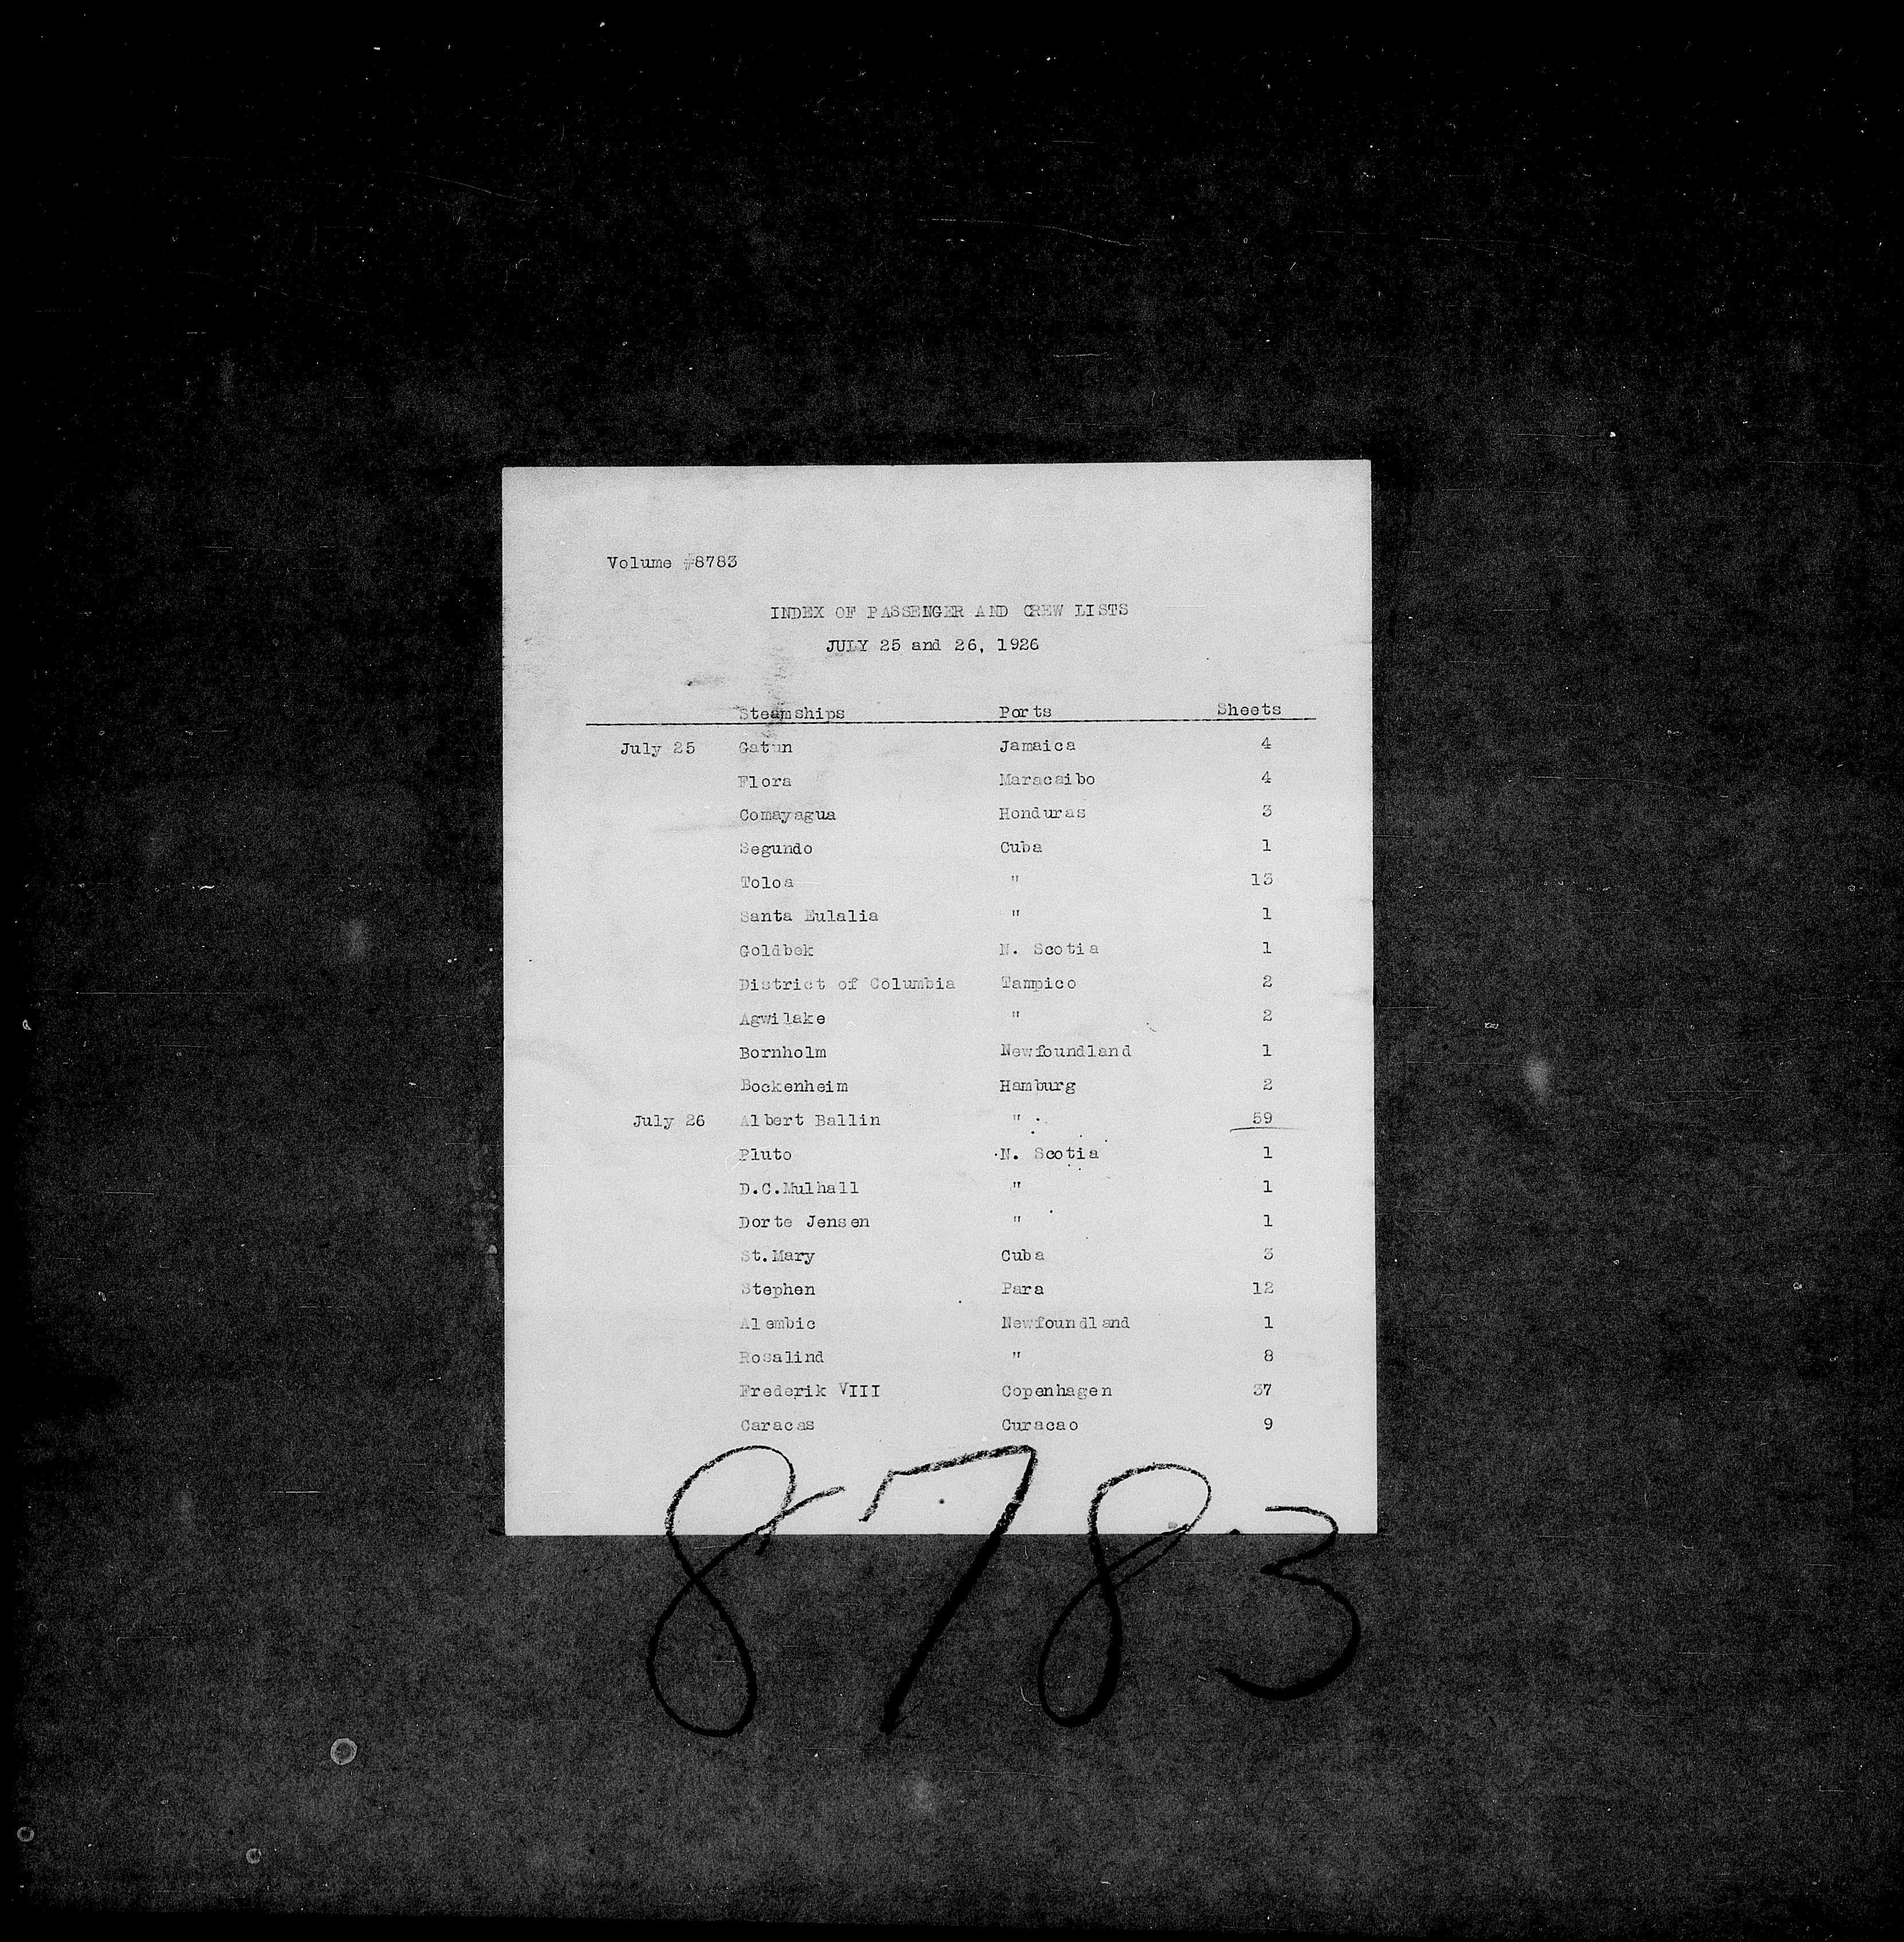 Volume #8783
INDEX OF PASSENGER AND CREW LISTS
JULY 25 and 26, 1926
Steamships Ports Sheets
July 25 Gatun Jamaica 4
Flora Maracaibo 4
Comayagua Honduras 3
Segundo Cuba 1
Toloa " 13
Santa Eulalia " 1
Goldbek N. Scotia 1
District of Columbia Tampico 2
Agwilake " 2
Bornholm Newfoundland 1
Bockenheim Hamburg 2
July 26 Albert Ballin " 59
Pluto N. Scotia 1
D.C.Mulhall " 1
Dorte Jensen " 1
St.Mary Cuba 3
Stephen Para 12
Alembic Newfoundland 1
Rosalind " 8
Frederik VIII Copenhagen 37
Caracas Curacao 9
8783